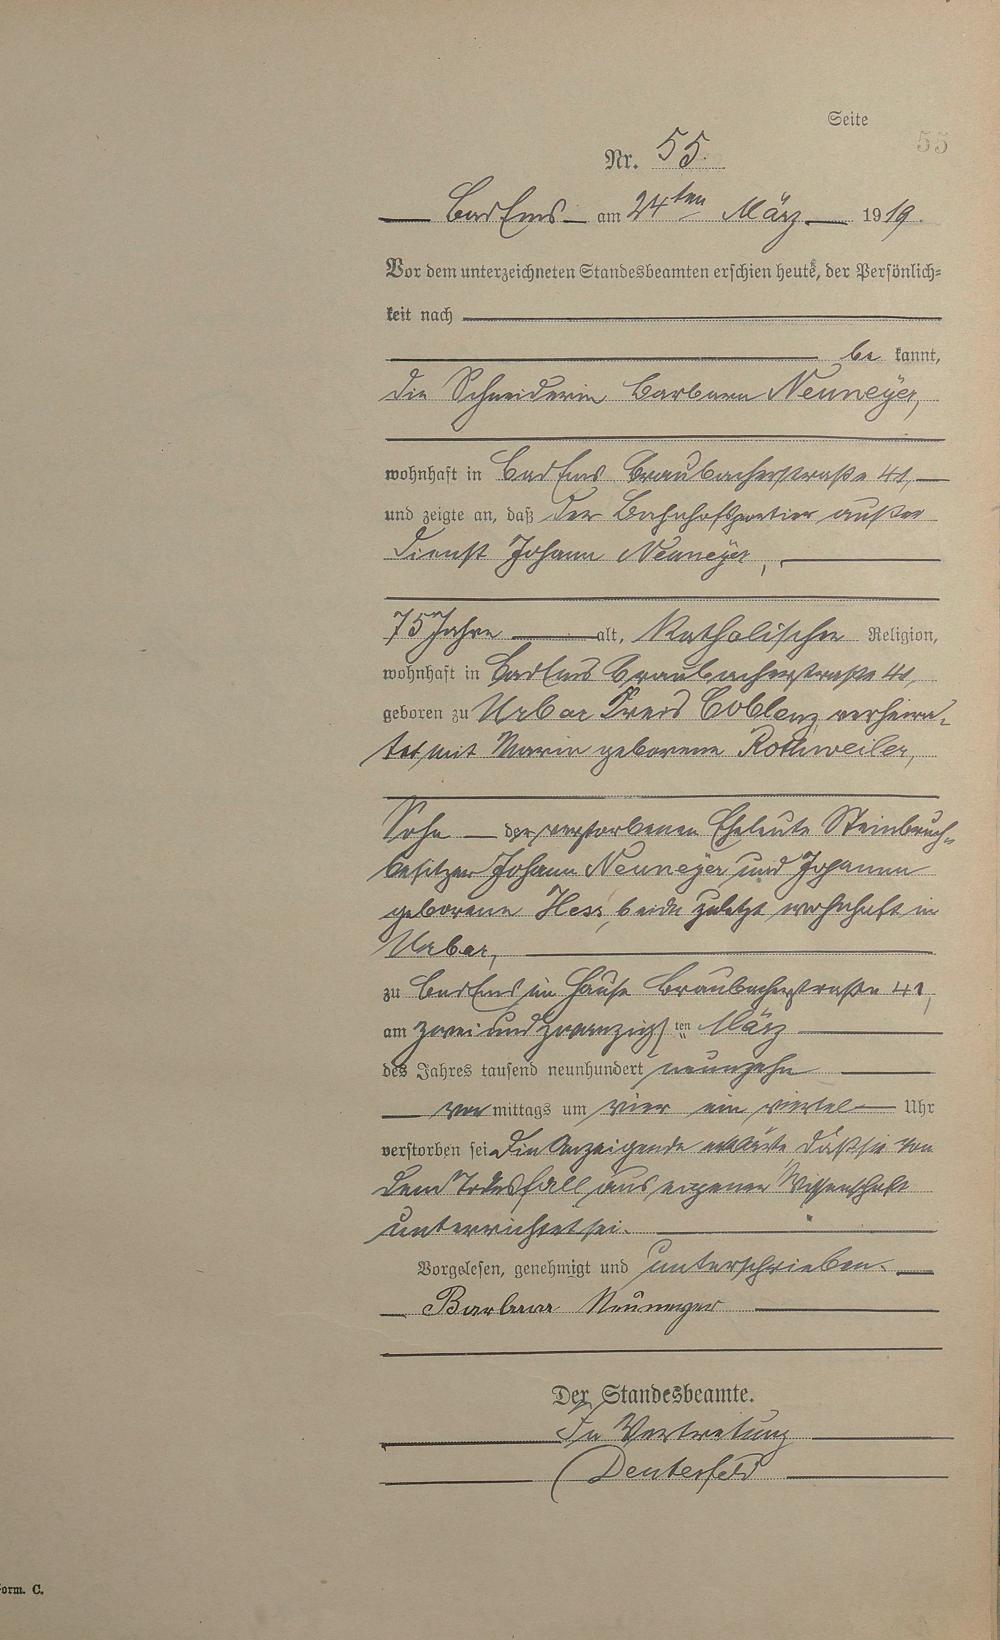 Seite
55
Nr. 55.
Bad Ems am 24ten März 1919.
Vor dem unterzeichneten Standesbeamten erschien heute, der Persönlich-
keit nach
be kannt,
die Schneiderin Barbara Neuneyer,
wohnhaft in Bad Ems Braubacherstraße 41,
und zeigte an, daß der Bahnhofsportier außer
Dienst Johann Neuneyer,
75 Jahre alt, Katholischer Religion,
wohnhaft in Bad Ems Braubacherstraße 41,
geboren zu Urbar Kreis Coblenz verheira-
tet mit Maria geborene Rothweiler,
Sohn der verstorbenen Eheleute Steinbruch-
besitzer Johann Neuneyer und Johanna
geborene Hess, beide zuletzt wohnhaft in
Urbar,
zu Bad Ems im Hause Braubacherstraße 41,
am zwei und zwanzigsten März
des Jahres tausend neunhundert neunzehn
vor mittags um vier ein viertel Uhr
verstorben sei. Die Anzeigende erklärte daß sie von
dem Todesfall aus eigener Wissenschaft
unterrichtet sei.
Vorgelesen, genehmigt und unterschrieben.
Barbara Neuneyer
Der Standesbeamte.
In Vertretung
Form. C.